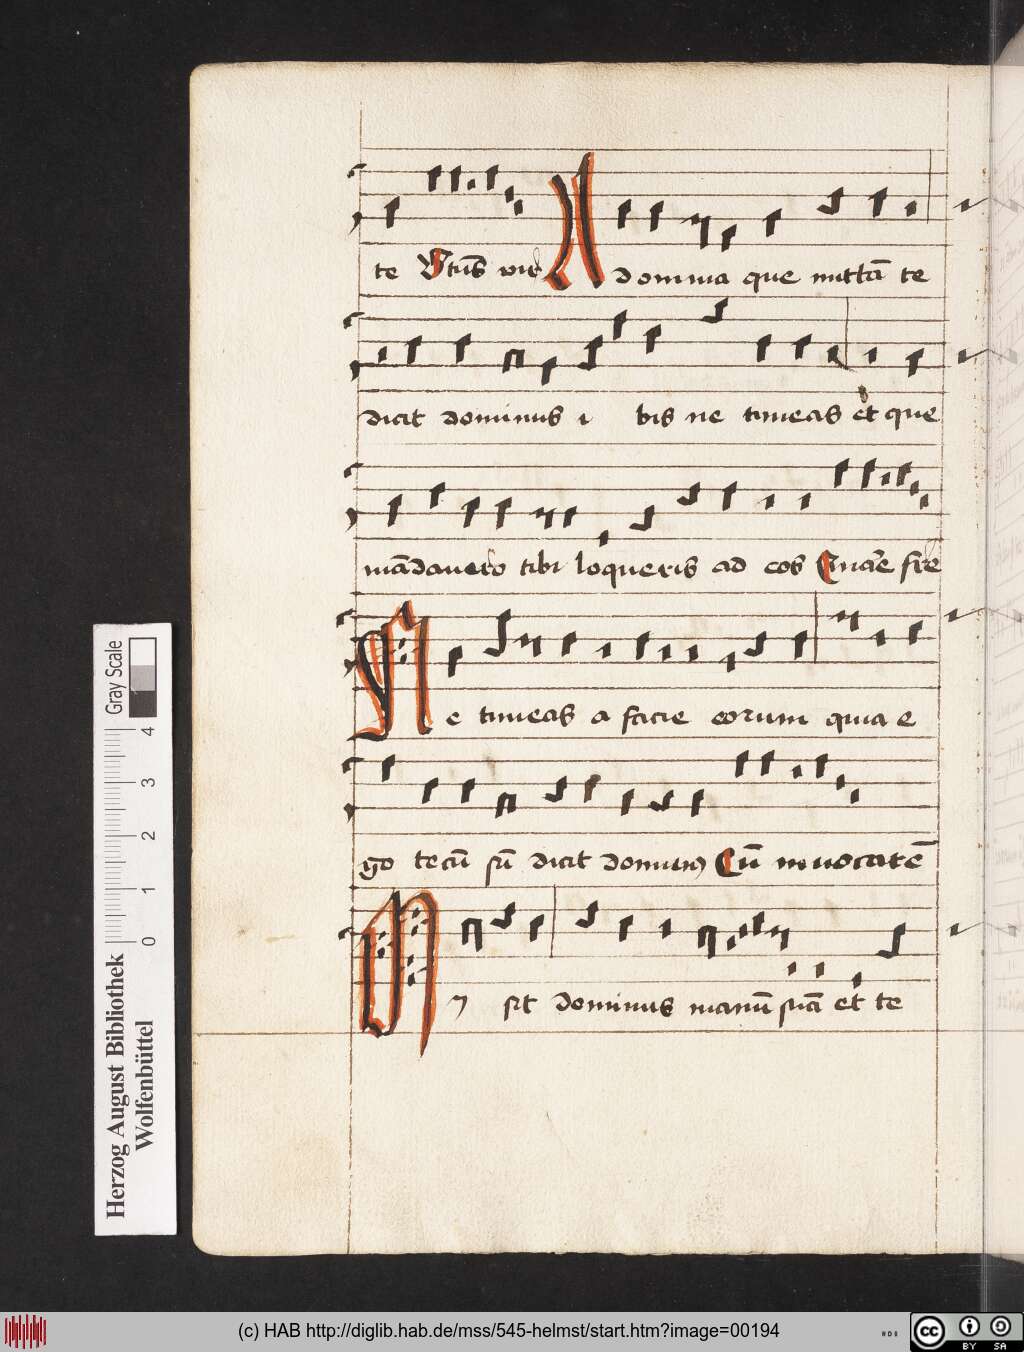 te Btūs vir A d omnia que mittā te
dicit dominus i bis ne timeas et que
mādavero tibi loqueris ad eos
N e timeas a facie eorum quia e
go tecū sū dicit dominus Cū invocarē
M i sit dominus manū suā et te
Gray Scale
0 1 2 3 4
Herzog August Bibliothek
Wolfenbüttel
(c) HAB http://diglib.hab.de/mss/545-helmst/start.htm?image=00194
cc BY SA